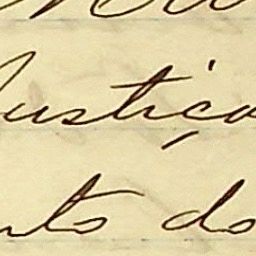 Justiça
nto do